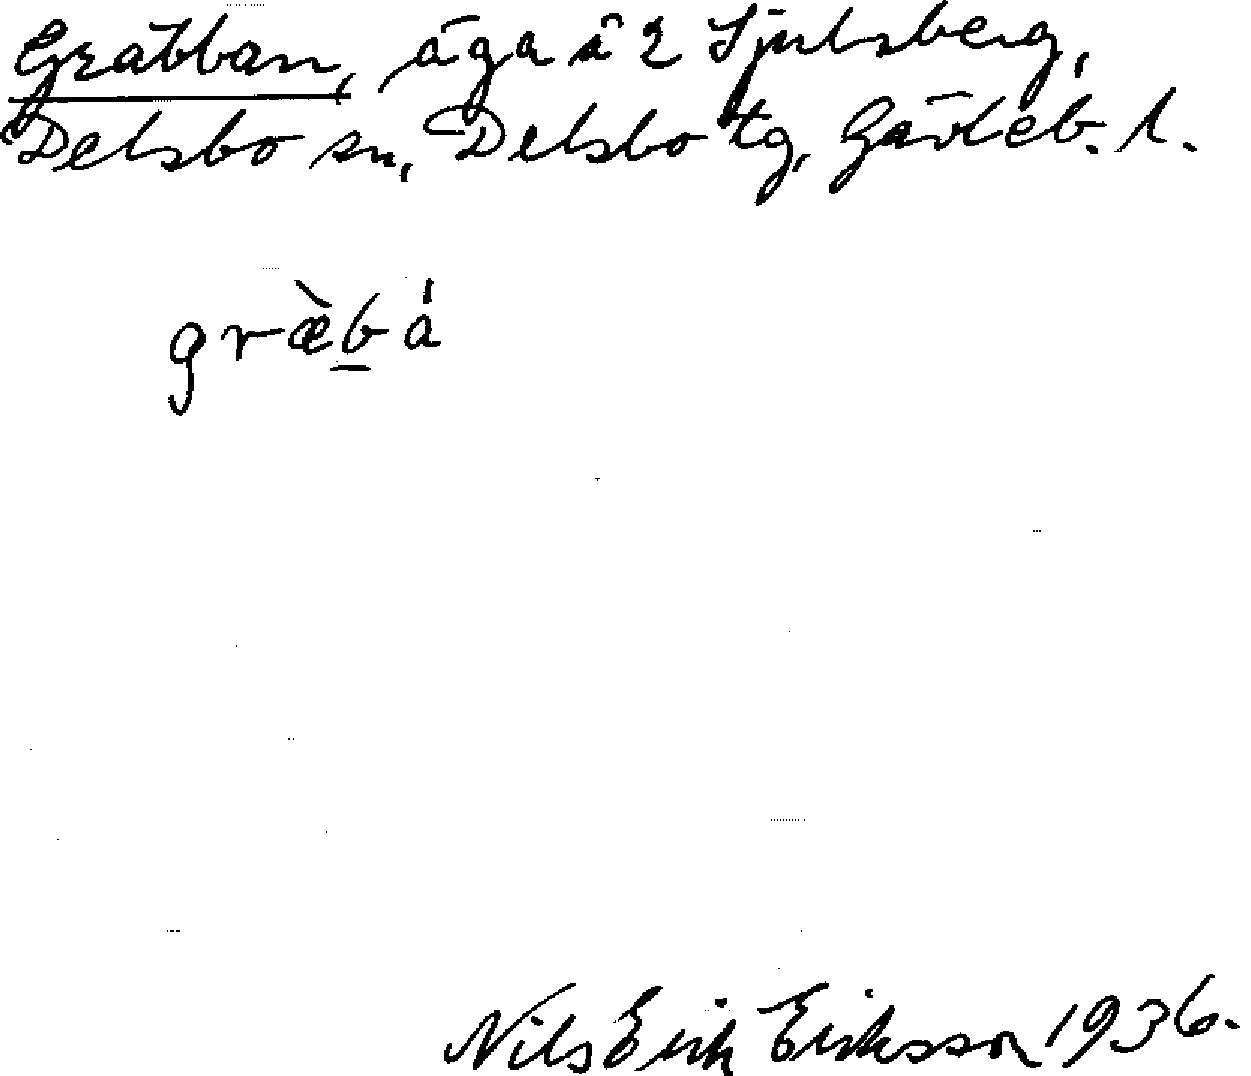 Gräbban, äga å 2 Sjulsberg,
Delsbo sn, Delsbo tg, Gävleb. l.
græ̀bá
Nils Erik Eriksson 1936.